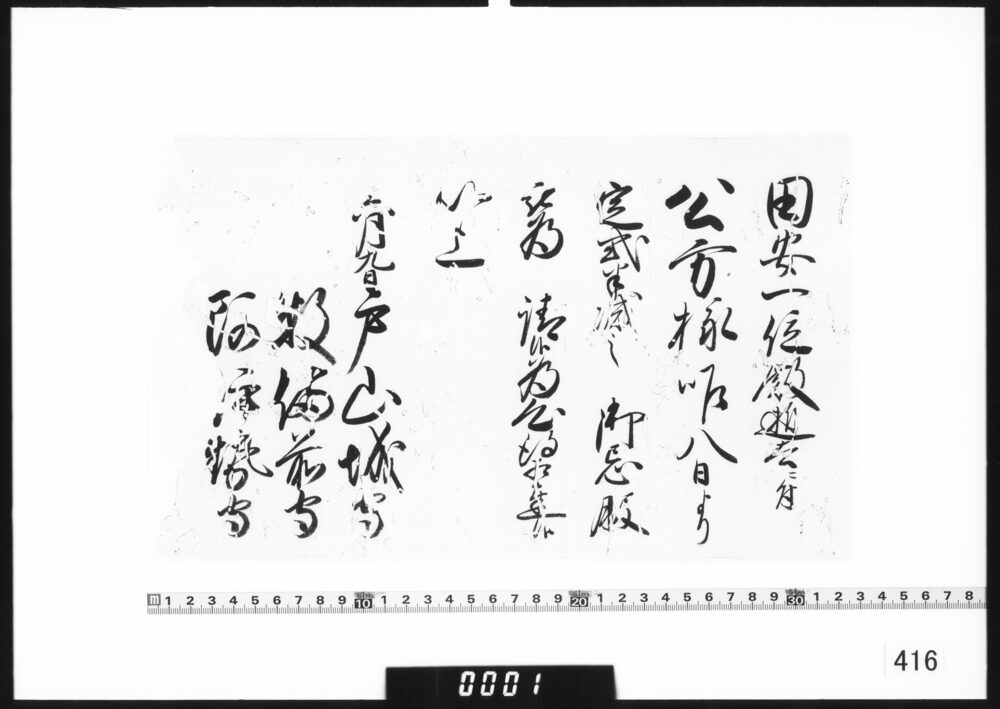 田安一位殿逝去ニ付
公方様昨八日より
定式半減之 御忌服
被為 請候為
以上
六月九日 戸山城守
牧備前守
阿伊勢守
m 1 2 3 4 5 6 7 8 9 10 1 2 3 4 5 6 7 8 9 20 1 2 3 4 5 6 7 8 9 30 1 2 3 4 5 6 7 8
416
0001